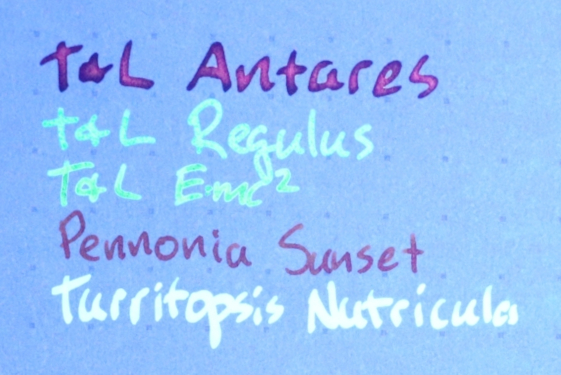 T&L Antares
T&L Regulus
T&L Emc²
Pennonia Sunset
Turritopsis Nutricula